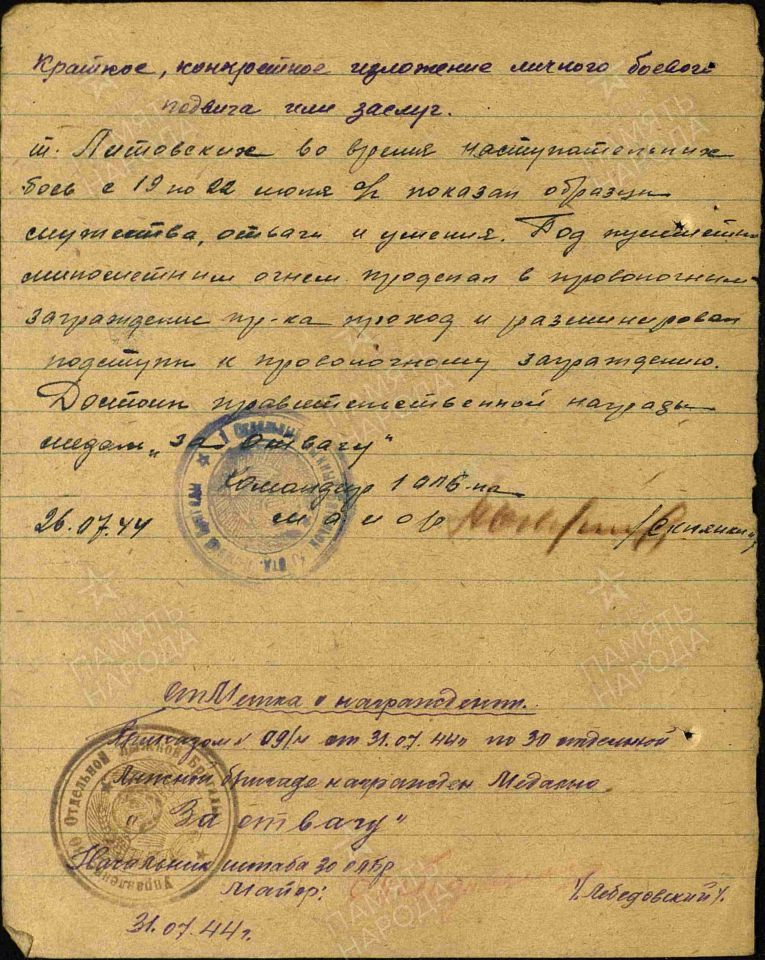 Краткое, конкретное изложение личного боевого
подвига или заслуг.
т. Литовских во время наступательных
боев с 19 по 22 июля показал образцы
мужества, отваги и умения. Под пулеметн
минометным огнем проделал в проволочном
заграждении пр-ка проход и разминировал
подступы к проволочному заграждению.
Достоин правительственной награды
медали „за отвагу"
Командир 1
26.07.44 майор
Отметка о награждении.
Приказом № 09/н от 31.07.44г по 30 отдельной
Лыжной бригаде награжден Медалью
„За отвагу"
Начальник штаба 30 олбр
Майор: /Лебедовский/.
31.07.44г.
ПАМЯТЬ
НАРОДА